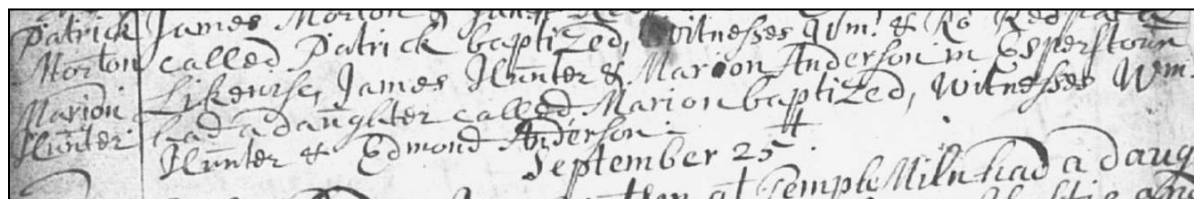 Patrick James Morton &
Morton called Patrick baptized, Witnesses Wm. & Ro
Likewise, James Hunter & Marion Anderson in Esperstoun
Marion had a daughter called Marion baptized, Witnesses Wm
Hunter Hunter & Edmond Anderson.
September 25th
at Temple Miln had a daug